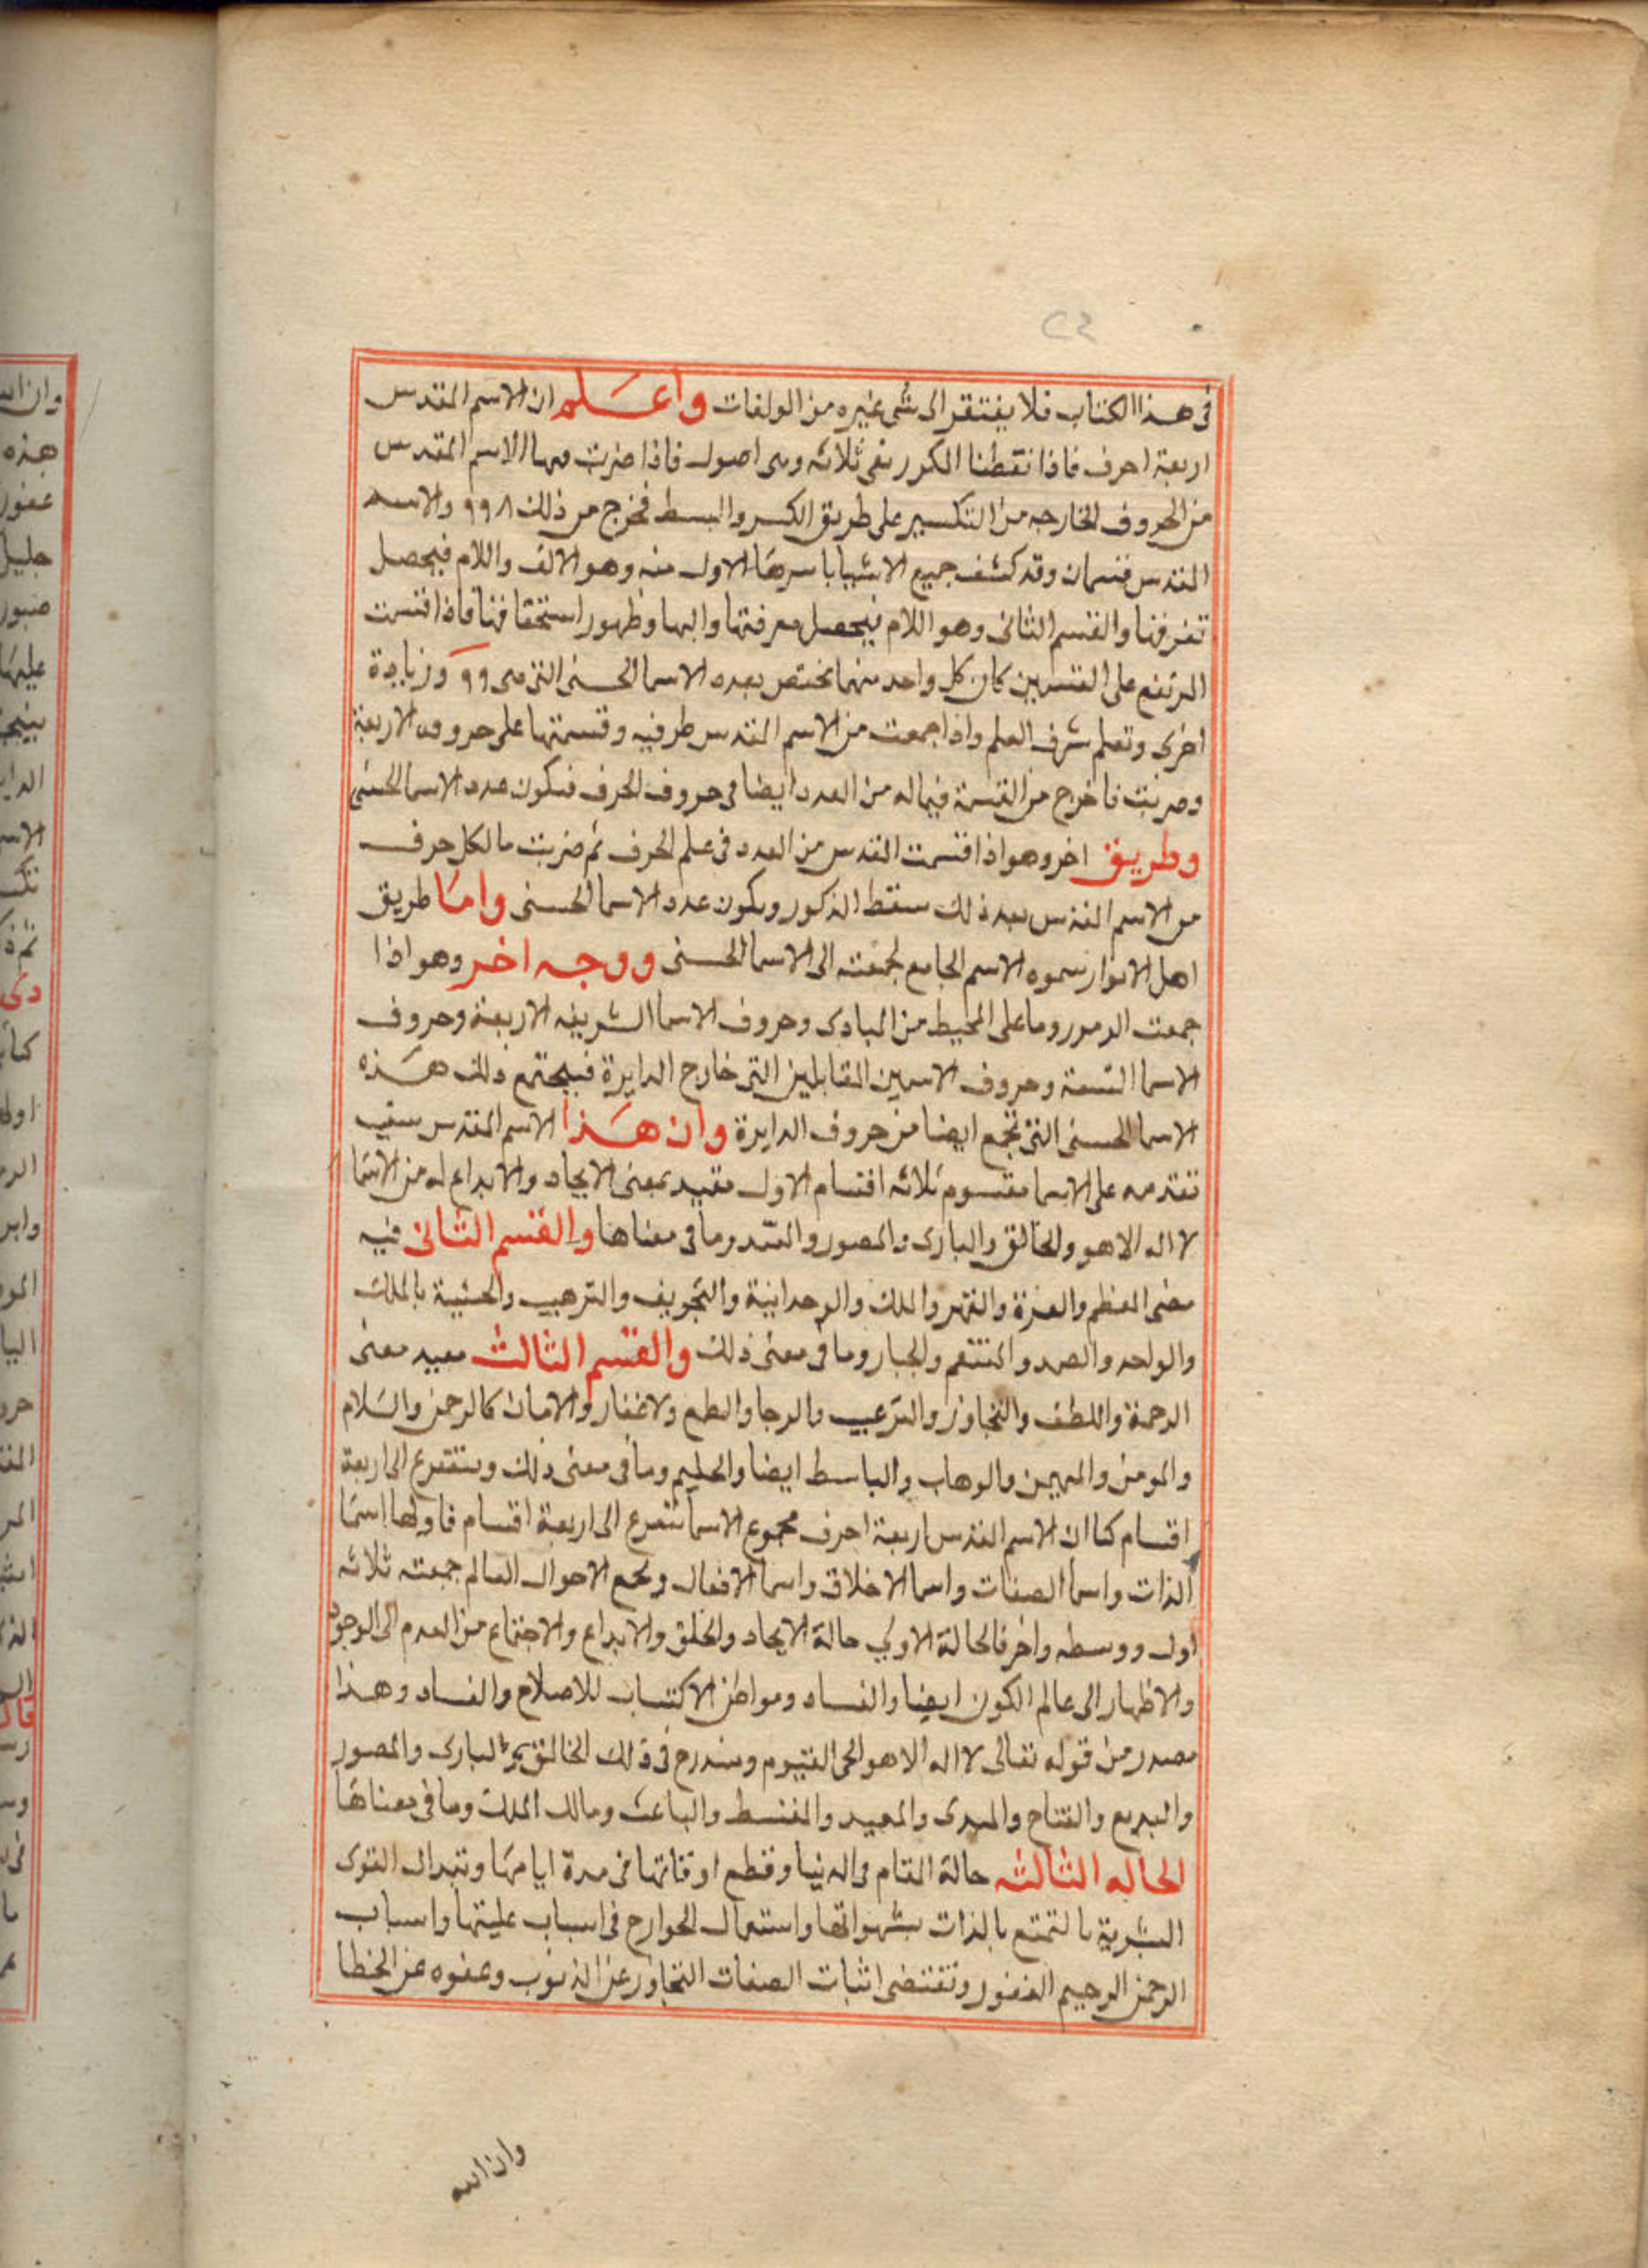 في هذا الكتاب فلا يفتقر الى شي غيره من المولفات واعلم ان الاسم المقدس
اربعة احرف فاذا نقطنا المكرر بقى ثلاثه وهى اصول فاذا ضربت فيها الاسم المقدس
من الحروف الخارجه من التكسير على طريق الكسر والبسط فخرج من ذلك ٩٩٨ والاسم
المقدس قسمان وقد كشف جميع الاشيا باسرها الاول منه وهو الالف واللام فيحصل
تعرفها والقسم الثانى وهو اللام فيحصل معرفتها والها وظهور استحقاقها فاذا اقتسمت
المرتفع على القسمين كان كل واحد منهما يختص بعده الاسما الحسنى التى هى ٩٩ وزيادة
اخرى وتعلم شرف العلم واذا جمعت من الاسم المقدس طرفيه وقسمتها على حروفه الاربعة
وضربت ما خرج من القسمة فيما له من العدد ايضا فى حروف الحرف فيكون عدد الاسما الحسنى
وطريق اخر وهو اذا قسمت المقدس من العدد فى علم الحرف ثم ضربت ما لكل حرف
من الاسم المقدس بعد ذلك سقط المذكور ويكون عدد الاسما الحسنى واما طريق
اهل الانوار سموه الاسم الجامع لجمعته الى الاسما الحسنى ووجه اخر وهو اذا
جمعت الرموز وما على المحيط من المبادى وحروف الاسما الشريفه الاربعة وحروف
الاسما التسعة وحروف الاسمين المقابلين التى خارج الدايرة فيجتمع ذلك هذه
الاسما الحسنى التى تجمع ايضا من حروف الدايرة وان هذا الاسم المقدس سبب
تقدمه على الاسما مقسوم ثلاثه اقسام الاول مقيد بمعنى الايجاد والابداع له من الاسما
لا اله الا هو والخالق والبارى والمصور والمبدى وما فى معناها والقسم الثانى فيه
معنى العظم والعزة والقهر والملك والوحدانية والتخويف والترهيب والخشية بالملك
والواحد والصمد والمنتقم والجبار وما فى معنى ذلك والقسم الثالث مقيد معنى
الرحمة واللطف والتجاوز والترغيب والرجا والطمع والاغفار والامان كالرحمن والسلام
والمومن والمهيمن والوهاب والباسط ايضا والحليم وما فى معنى ذلك ويتفرع الى اربعة
اقسام كما ان الاسم المقدس اربعة احرف مجموع الاسما تتفرع الى اربعة اقسام فاولها اسما
الذات واسما الصفات واسما الاخلاق واسما الافعال وجميع الاحوال العالم جمعته ثلاثه
اول ووسطه واخر فالحالة الاولى حالة الايجاد والخلق والابداع والاجتماع من العدم الى الوجود
والاظهار الى عالم الكون ايضا والفساد ومواطن الاكتساب للاصلاح والفساد وهذا
مصدر من قوله تعالى لا اله الا هو الحى القيوم ويندرج فى ذلك الخالق البارى والمصور
والبديع والفتاح والمبدى والمعيد والمقسط والباعث ومالك الملك وما فى معناها
الحاله الثالثه حالة المقام فى الدنيا وقطع اوقاتها فى مدة ايامها وتبدال القوى
البشرية بالتمتع بالذات بشهواتها واستعمال الجوارح فى اسباب عليتها واسباب
الرحمن الرحيم الغفور وتقتضى اثبات الصفات التجاوز عن الذنوب وعفوه عن الخطا
وان الله